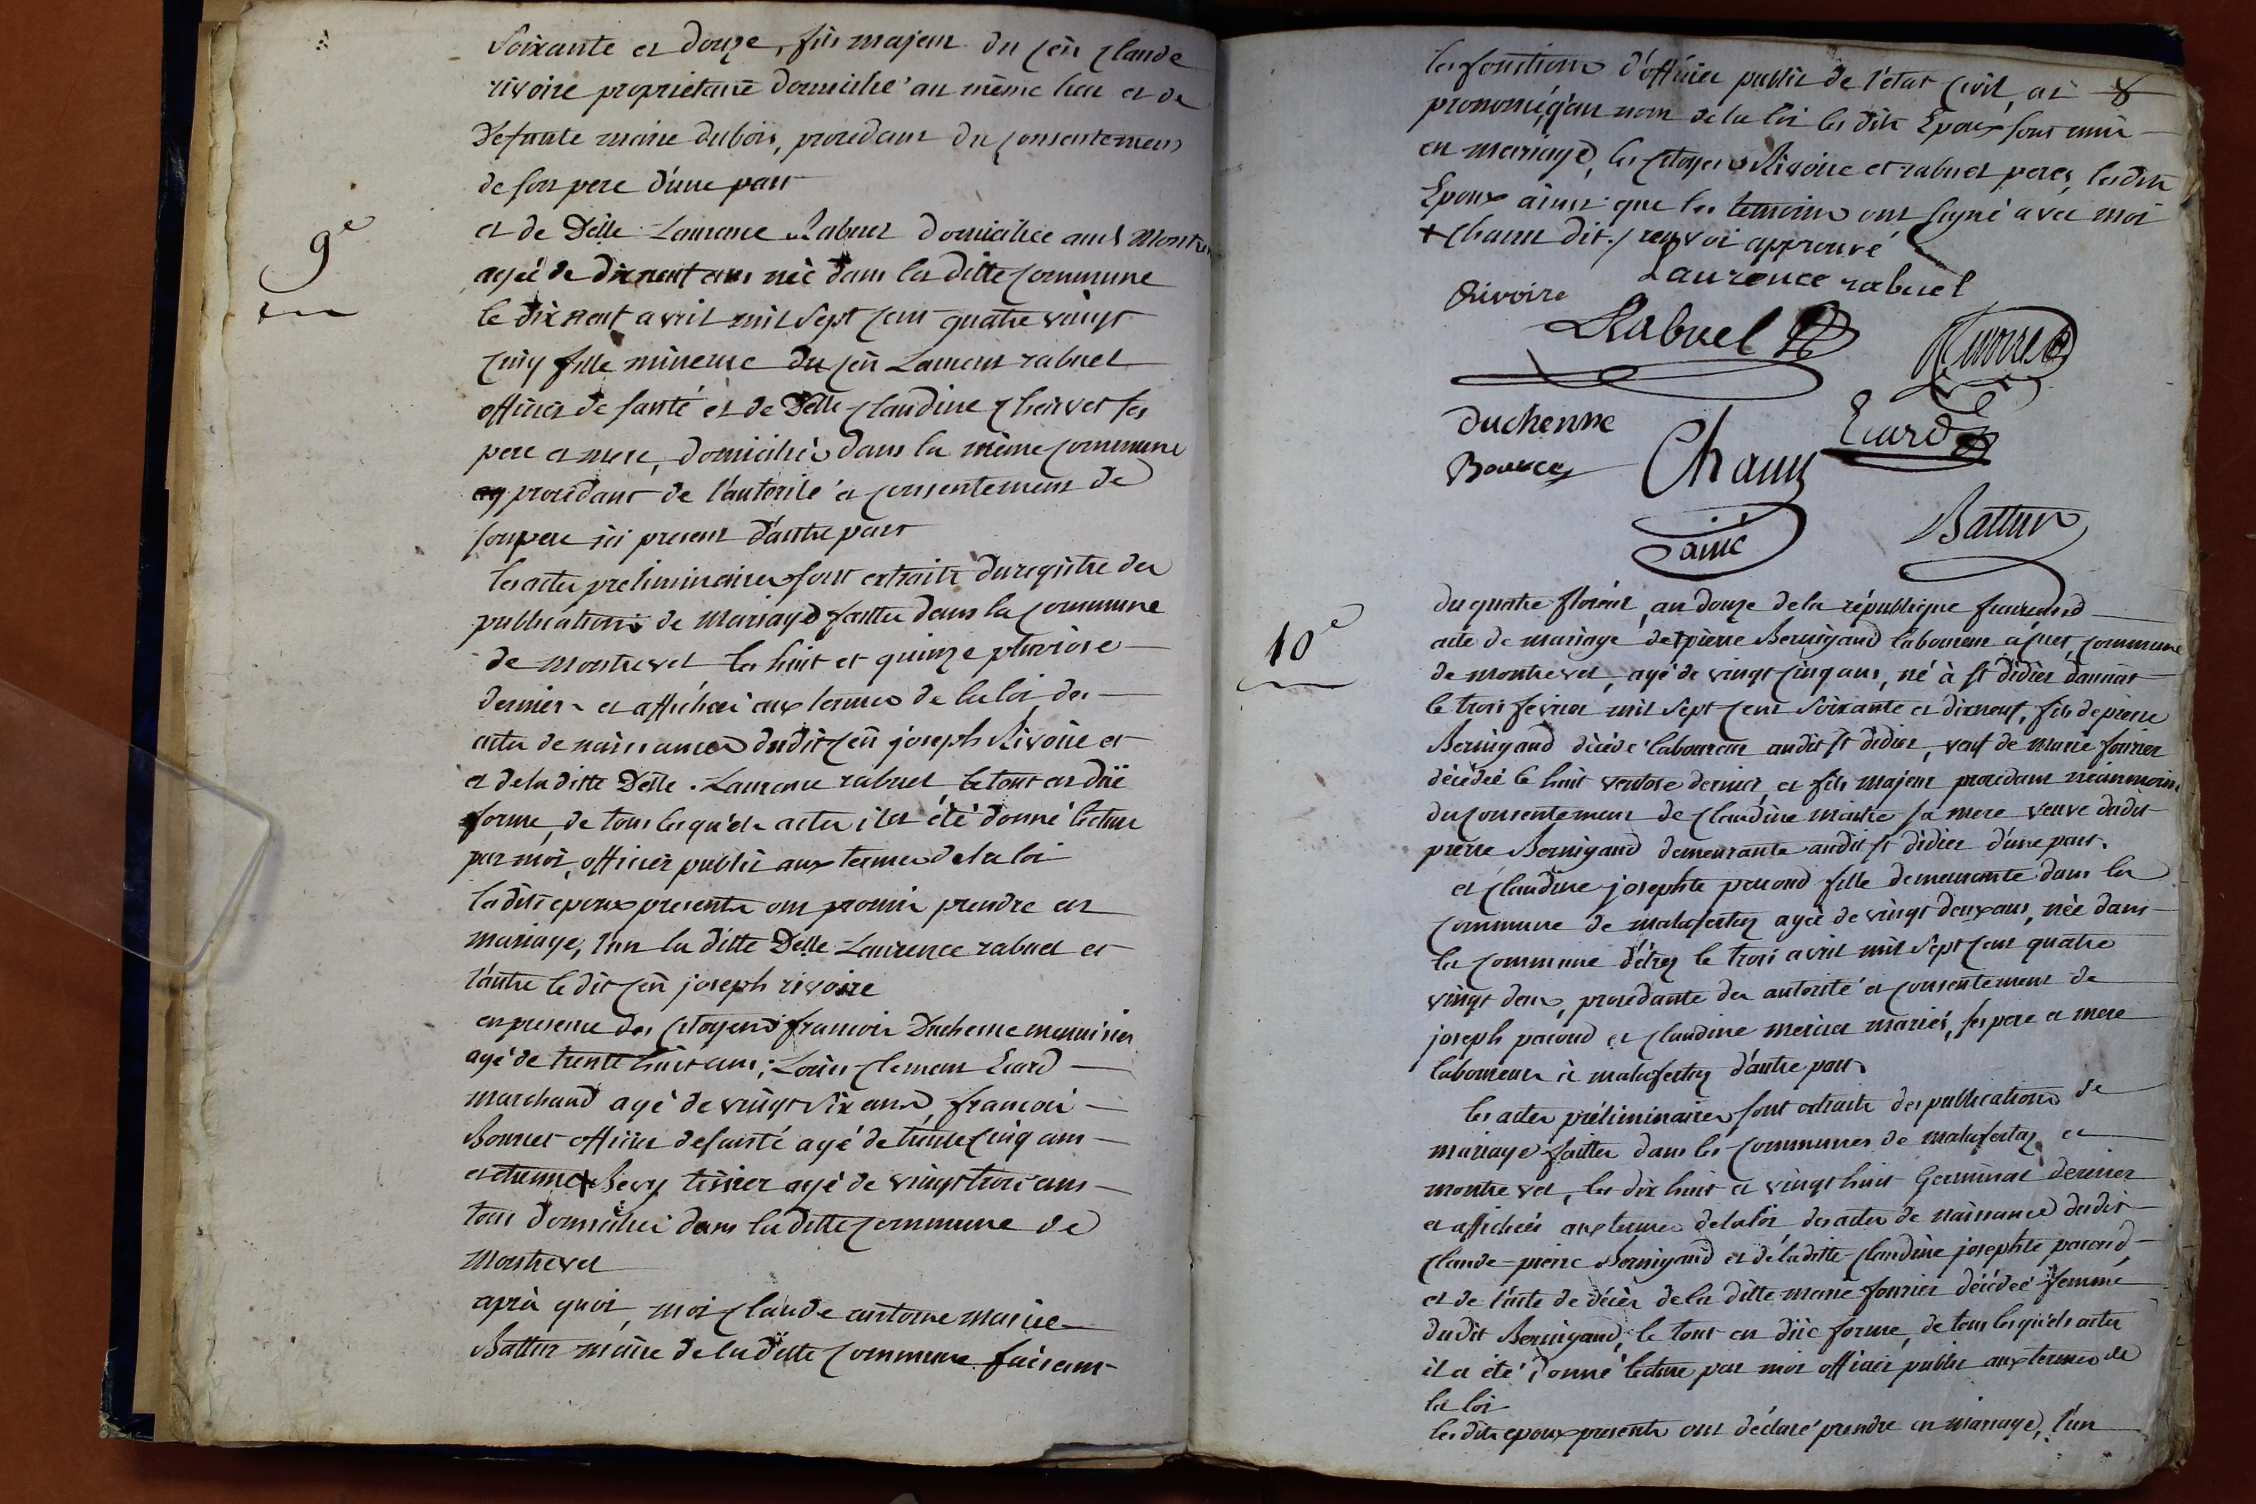 soixante et douze, fils majeur du cen claude
rivoire propriétaire domicilié au même lieu et de
défunte marie dubois, procedant du consentement
de son pere d'une part
9e
et de Delle Laurence Rabuel domiciliée audt Montrevel
agée de dixneuf ans née dans la ditte commune
le dixneuf avril mil sept cent quatre vingt
cinq fille mineure du cen Laurent rabuel
officier de santé et de Delle claudine ses
pere et mere, domiciliés dans la même commune
procedant de l'autorité et consentement de
son pere ici present d'autre part
les actes preliminaires sont extraits du registre des
publications de mariage faittes dans la commune
de montrevel les huit et quinze pluviose
dernier et affichés aux termes de la loi, des
actes de naissances dudit cen joseph Rivoire et
et de la ditte Delle Laurence rabuel, le tout en düe
forme, de tous lesquels actes il a été donné lecture
par moi, officier public aux termes de la loi
lesdits epoux presents ont promis prendre en
mariage, l'un la ditte Delle Laurence rabuel et
l'autre le dit cen joseph rivoire
en presence des citoyens françois Duchenne menuisier
agé de trente huit ans; Louis clement Ecard
marchand agé de vingt six ans, françois
officier de santé agé de trente cinq ans
et etienne + tissier agé de vingt trois ans
tous domiciliés dans la ditte commune de
Montrevel
après quoi, moi claude antoine marie
Battin maire de la ditte commune faisant
les fonctions d'officier public de l'état civil, ai 8
prononcé qu'au nom de la loi les dits Epoux sont unis
en mariage, les citoyens Rivoire et rabuel peres, les dits
Epoux ainsi que les temoins ont signé avec moi
+ chaun dit. / renvoi approuvé
Laurence rabuel
Rivoire
Rabuel
Rivoire
duchenne
Ecard
Chaun
ainé
Battin
10e
du quatre floréal, an douze de la république francaise
acte de mariage de + pierre Bernigaud laboureur à cuet, commune
de montrevel, agé de vingt cinq ans, né à st didier d'aussiat
le trois fevrier mil sept cent soixante et dixneuf, fils de pierre
Bernigaud décédé laboureur audit st didier, veuf de marie fourier
décédée le huit ventose dernier, et fils majeur procedant néanmoins
du consentement de claudine maitre sa mere veuve dudit
pierre Bernigaud demeurante audit st didier d'une part.
et claudine josephte pacoud fille demeurante dans la
commune de malafretaz agée de vingt deux ans, née dans
la commune d'étrez le trois avril mil sept cent quatre
vingt deux, procedante des autorité et consentement de
joseph pacoud et claudine mercier mariés, ses pere et mere
laboureurs à malafretaz d'autre part
les actes préliminaires sont extraits des publications de
mariage faittes dans les communes de malafretaz et
montrevel, les dix huit et vingt huit Germinal dernier
et affichées aux termes de la loi, des actes de naissance dudit
claude-pierre Bernigaud et de la ditte claudine josephte pacoud
et de l'acte de décès de la ditte marie fourier décédée femme
dudit Bernigaud, le tout en düe forme, de tous lesquels actes
il a été donné lecture par moi officier public aux termes de
la loi
les dits epoux presents ont déclaré prendre en mariage, l'un